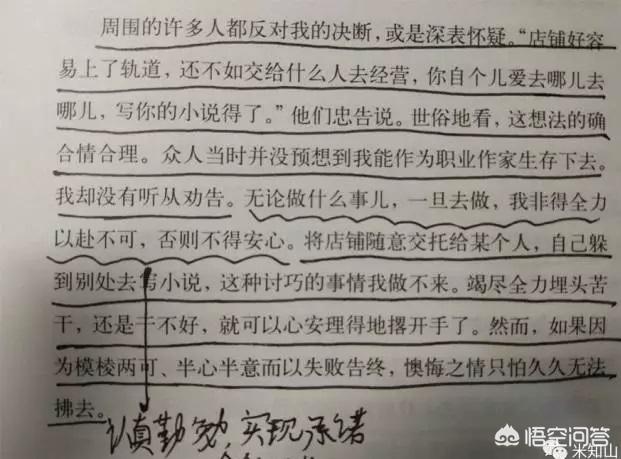 周围的许多人都反对我的决断，或是深表怀疑。“店铺好容
易上了轨道，还不如交给什么人去经营，你自个儿爱去哪儿去
哪儿，写你的小说得了。”他们忠告说。世俗地看，这想法的确
合情合理。众人当时并没预想到我能作为职业作家生存下去。
我却没有听从劝告。无论做什么事儿，一旦去做，我非得全力
以赴不可，否则不得安心。将店铺随意交托给某个人，自己躲
到别处去写小说，这种讨巧的事情我做不来。竭尽全力埋头苦
干，还是干不好，就可以心安理得地撂开手了。然而，如果因
为模棱两可、半心半意而以失败告终，懊悔之情只怕久久无法
拂去。
认真勤勉，实现承诺
悟空问答
米知山